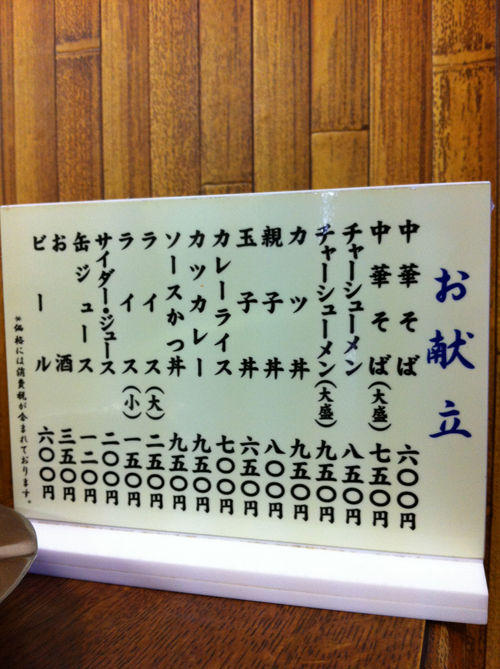 お献立
中華そば 六〇〇円
中華そば(大盛) 七五〇円
チャーシューメン 八五〇円
チャーシューメン(大盛) 九五〇円
カツ丼 九五〇円
親子丼 八〇〇円
玉子丼 六五〇円
カレーライス 七〇〇円
カツカレー 九五〇円
ソースかつ丼 九五〇円
ライス(大) 二五〇円
ライス(小) 一五〇円
サイダー・ジュース 二〇〇円
缶ジュース 一二〇円
お酒 三五〇円
ビール 六〇〇円
※価格には消費税が含まれております。